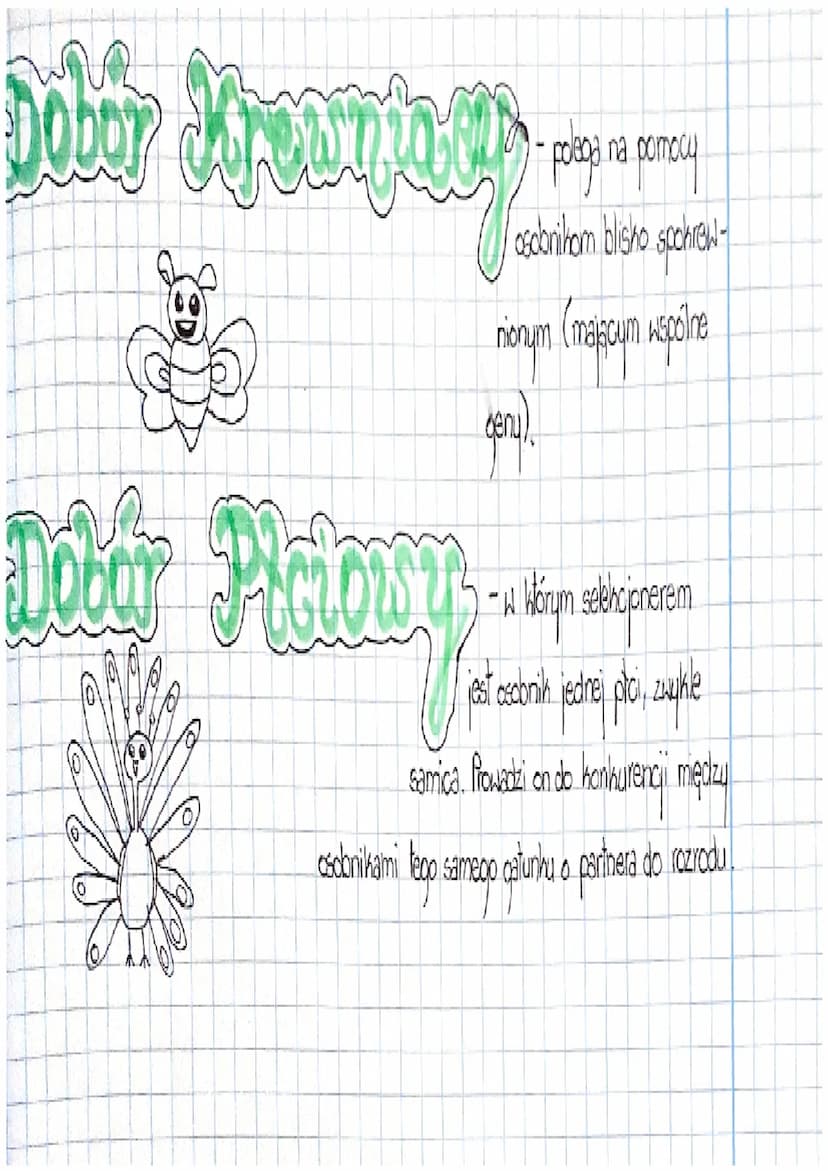 Dobór Krewniaczy - polega na pomocy
osobnikom blisko spokrew-
nionym (mającym wspólne
geny).
Dobór Płciowy - w którym selekcjonerem
jest osobnik jednej płci, zwykle
samica. Prowadzi on do konkurencji między
osobnikami tego samego gatunku o partnera do rozrodu.